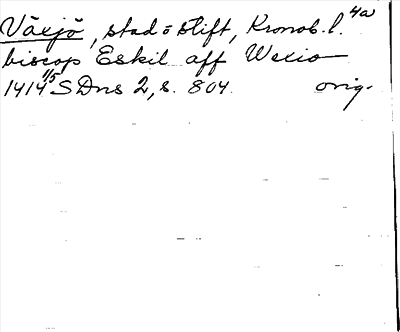 Växjö, stad o stift, Kronob. l. 4a
biscop Eskil aff Wexio
1414 1/5 SDns 2, s. 804. orig.